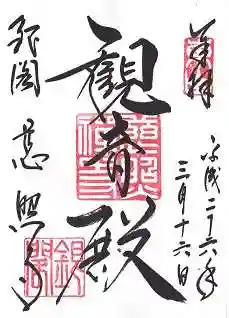 奉拝
平成二十六年
三月十六日
観音殿
銀閣
慈照寺